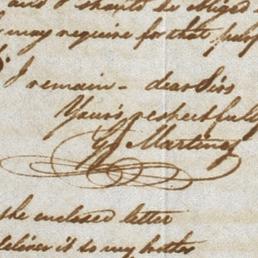 and I should be obliged
may require for that purp
I remain - dear Sirs
Yours respectfully
Martin
the enclosed letter
deliver it to my brother